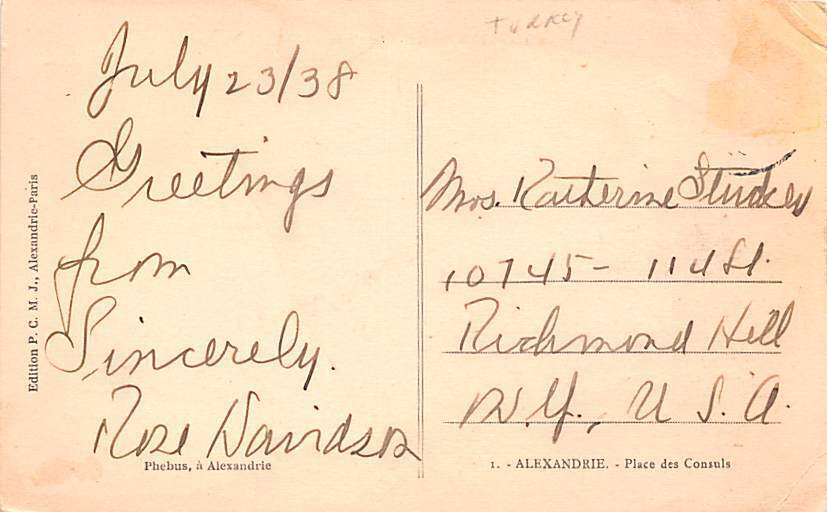 TURKEY
July 23/38
Greetings
from
Sincerely.
Rose Davidson
Edition P. C. M. J., Alexandrie-Paris
Phebus, à Alexandrie
Mrs. Katherine
10745 - 114 St.
Richmond Hill
N.Y., U.S.A.
1. - ALEXANDRIE. - Place des Consuls